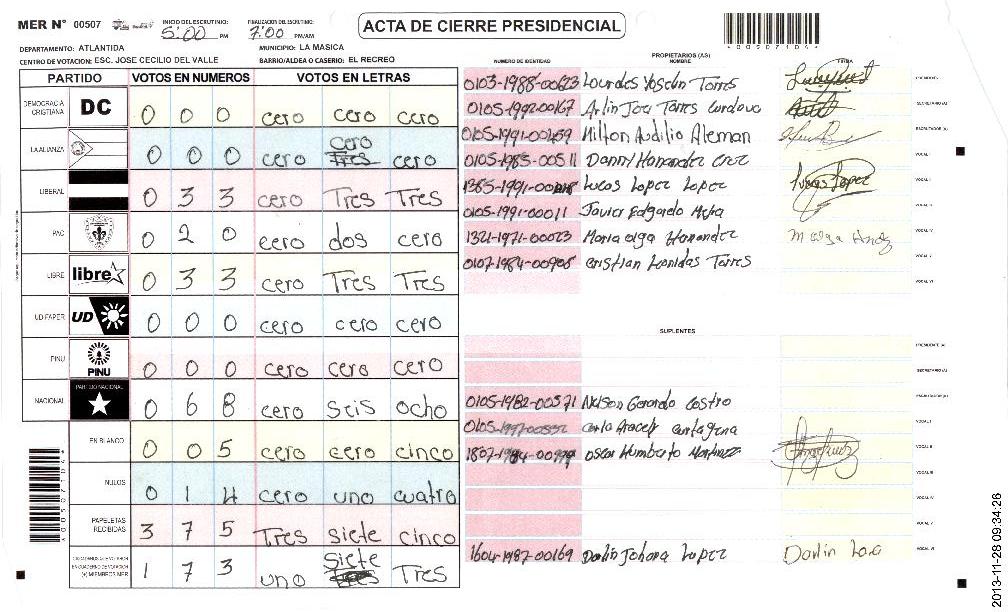 MER N° 00507 INICIO DEL ESCRUTINIO: 5:00 PM FINALIZACION DEL ESCRUTINIO: 7:00 PM/AM ACTA DE CIERRE PRESIDENCIAL
DEPARTAMENTO: ATLANTIDA MUNICIPIO: LA MASICA
CENTRO DE VOTACION: ESC. JOSE CECILIO DEL VALLE BARRIO/ALDEA O CASERIO: EL RECREO
PARTIDO VOTOS EN NUMEROS VOTOS EN LETRAS
DEMOCRACIA CRISTIANA DC 0 0 0 cero cero cero
LA ALIANZA 0 0 0 cero cero Tres cero
LIBERAL 0 3 3 cero Tres Tres
PAC 0 2 0 cero dos cero
LIBRE libre 0 3 3 cero Tres Tres
UD FAPER UD 0 0 0 cero cero cero
PINU PINU 0 0 0 cero cero cero
NACIONAL PARTIDO NACIONAL 0 6 8 cero Seis ocho
EN BLANCO 0 0 5 cero cero cinco
NULOS 0 1 4 cero uno cuatro
PAPELETAS RECIBIDAS 3 7 5 Tres siete cinco
1 7 3 uno Siete Tres
PROPIETARIOS (AS)
NUMERO DE IDENTIDAD NOMBRE FIRMA
Lourdes Yoselin Torres PRESIDENTE
0105-1992-00167 Arlin Joel Torres Cordova SECRETARIO (A)
Hilton Audilio Aleman ESCRUTADOR (A)
0105-1985-00511 Danny Hernandez Cruz VOCAL I
Lucas Lopez Lopez Lucas Lopez VOCAL II
0105-1991-00011 Javier Edgardo Mejia VOCAL III
1321-1971-00023 Maria olga Hernandez M olga Hndz VOCAL IV
0107-1984-00908 Cristian Leonidas Torres VOCAL V
VOCAL VI
SUPLENTES
PRESIDENTE (A)
SECRETARIO (A)
0105-1982-00571 Nelson Gerardo Castro ESCRUTADOR (A)
Carla Aracely Cartagena VOCAL I
Oscar Humberto Martinez VOCAL II
VOCAL III
VOCAL IV
VOCAL V
1604-1987-00169 Darlin Johana Lopez VOCAL VI
2013-11-28 09:34:26